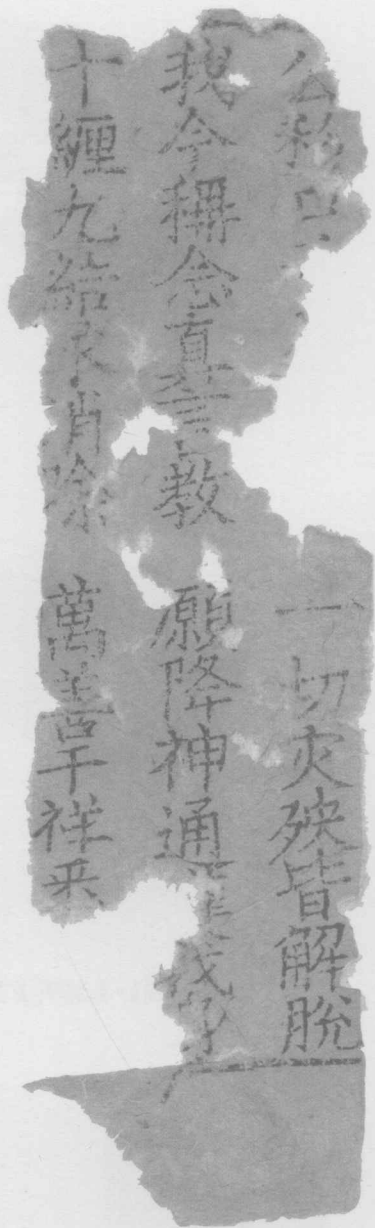 公私 一切灾殃皆解脱
我今稱念真言教 願降神通護我身
十纏九結永消除 萬善千祥悉